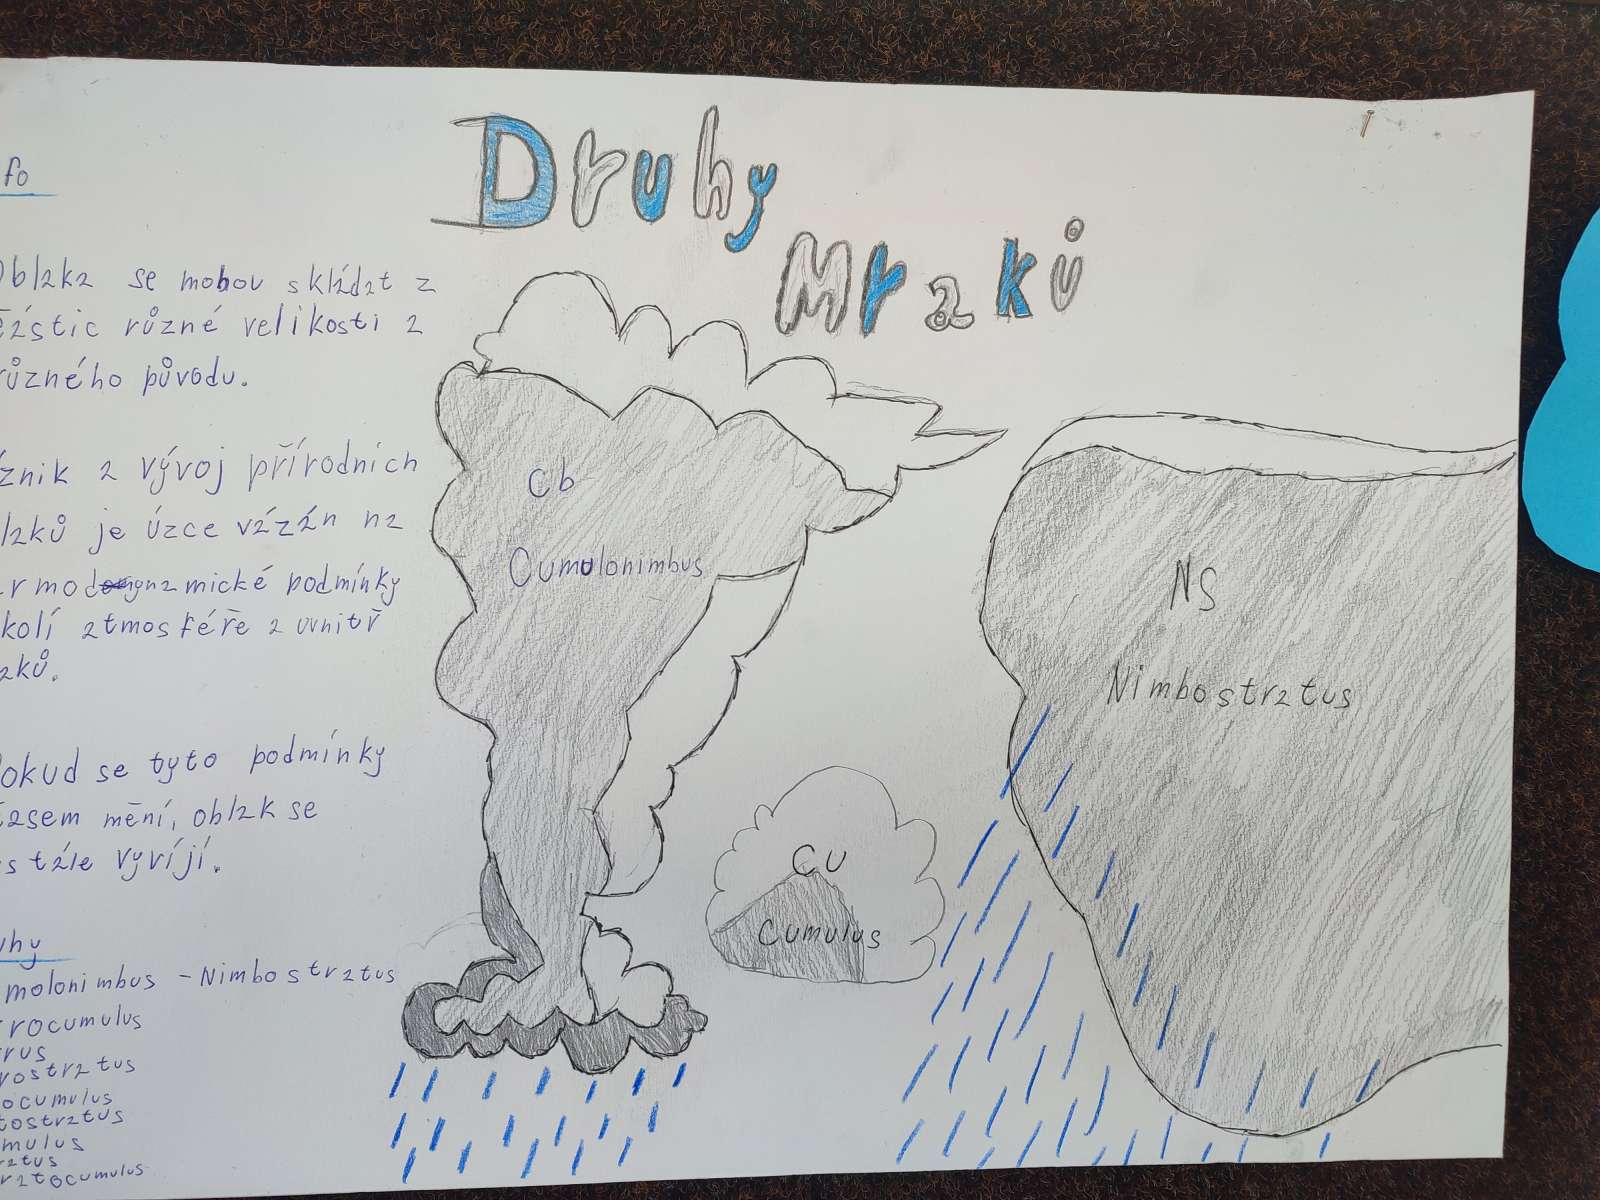 Druhy
Mraků
fo
Oblaka se mohou skládat z
částic různé velikosti a
různého původu.
znik a vývoj přírodních
laků je úzce vázán na
rmodynamické podmínky
kolí atmosféře a uvnitř
aků.
Pokud se tyto podmínky
časem mění, oblak se
stále vyvíjí.
uhy
molonimbus - Nimbostratus
rocumulus
rus
rostratus
ocumulus
tostratus
mulus
ratus
ratocumulus
Cb
Cumulonimbus
CU
Cumulus
NS
Nimbostratus